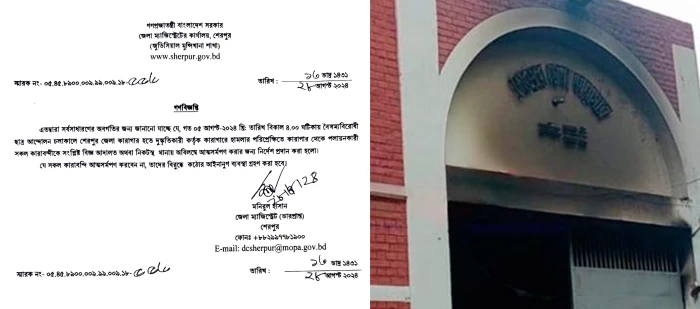 গণপ্রজাতন্ত্রী বাংলাদেশ সরকার
জেলা ম্যাজিস্ট্রেটের কার্যালয়, শেরপুর
(জুডিসিয়াল মুন্সিখানা শাখা)
www.sherpur.gov.bd
স্মারক নং- ০৫.৪৫.৮৯০০.০০৯.৯৯.০০৯.১৮-
তারিখ : ১৩ ভাদ্র ১৪৩১
২৮ আগস্ট ২০২৪
গণবিজ্ঞপ্তি
এতদ্বারা সর্বসাধারণের অবগতির জন্য জানানো যাচ্ছে যে, গত ০৫ আগস্ট-২০২৪ খ্রি: তারিখ বিকাল ৪.০০ ঘটিকায় বৈষম্যবিরোধী
ছাত্র আন্দোলন চলাকালে শেরপুর জেলা কারাগার হতে দুষ্কৃতিকারী কর্তৃক কারাগারে হামলার পরিপ্রেক্ষিতে কারাগার থেকে পলায়নকারী
সকল কারাবন্দীকে সংশ্লিষ্ট বিজ্ঞ আদালত অথবা নিকটস্থ থানায় অবিলম্বে আত্মসমর্পণ করার জন্য নির্দেশ প্রদান করা হলো।
যে সকল কারাবন্দি আত্মসমর্পণ করবেন না, তাদের বিরুদ্ধে কঠোর আইনানুগ ব্যবস্থা গ্রহণ করা হবে।
মনিরুল হাসান
জেলা ম্যাজিস্ট্রেট (ভারপ্রাপ্ত)
শেরপুর
ফোনঃ +৮৮০২৯৯৭৭৮১৯০০
E-mail: dcsherpur@mopa.gov.bd
স্মারক নং- ০৫.৪৫.৮৯০০.০০৯.৯৯.০০৯.১৮-
তারিখ : ১৩ ভাদ্র ১৪৩১
২৮ আগস্ট ২০২৪